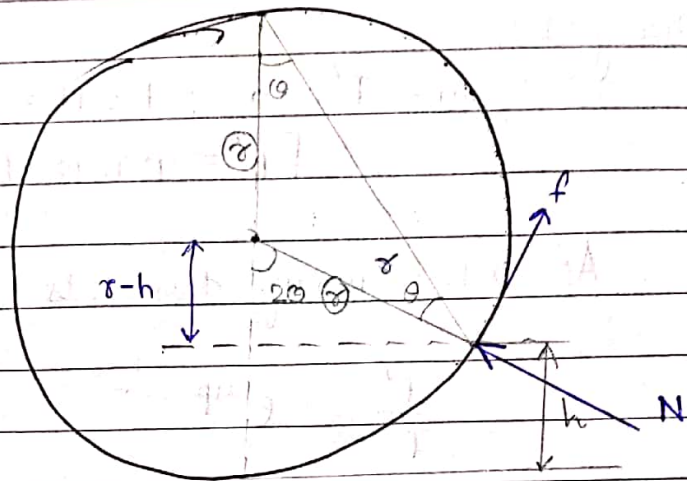 θ
r
f
r
r-h
2θ r θ
h
N